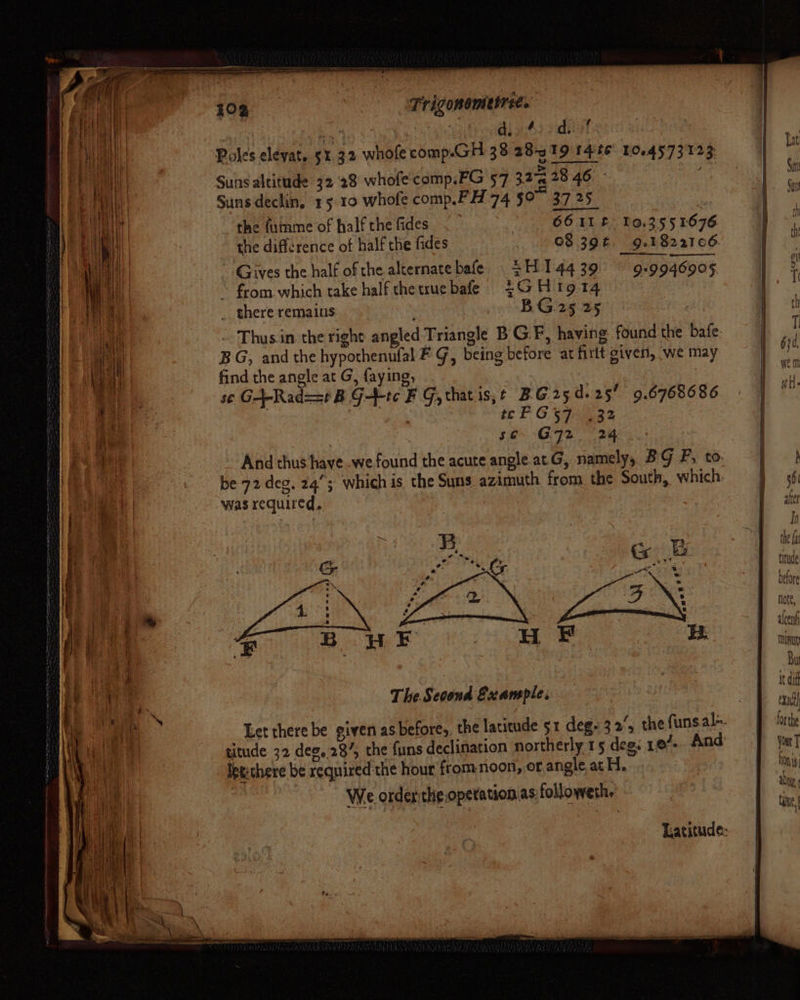 102 Trigonometrie.
d. ' d. '
Poles elevat. 51 32 whose comp. GH 38 28 19 14 tc 10.4573123
Suns altitude 32 28 whose comp. FG 57 32 28 46
Suns declin. 15 10 whose comp. FH 74 50 37 25
the summe of half the sides 66 11 t 10.3551676
the difference of half the sides 08 39 t 9.1822106
Gives the half of the alternate base ½ H I 44 39 9.9946905
from which take half the true base ½ G H 19 14
there remains B G 25 25
Thus in the right angled Triangle B G F, having found the base
B G, and the hypothenusal F G, being before at first given, we may
find the angle at G, saying,
sc G+Rad==t B G+tc F G, that is, t B G 25 d. 25' 9.6768686
tc F G 57 32
sc G 72 24
And thus have we found the acute angle at G, namely, B G F, to
be 72 deg. 24'; which is the Suns azimuth from the South, which
was required.
B G B
G G
1 2 3
F B H F H F H
The Second Example.
Let there be given as before, the latitude 51 deg. 32', the suns al-
titude 32 deg. 28', the suns declination northerly 15 deg. 10'. And
let there be required the hour from noon, or angle at H.
We order the operation as followeth.
Latitude